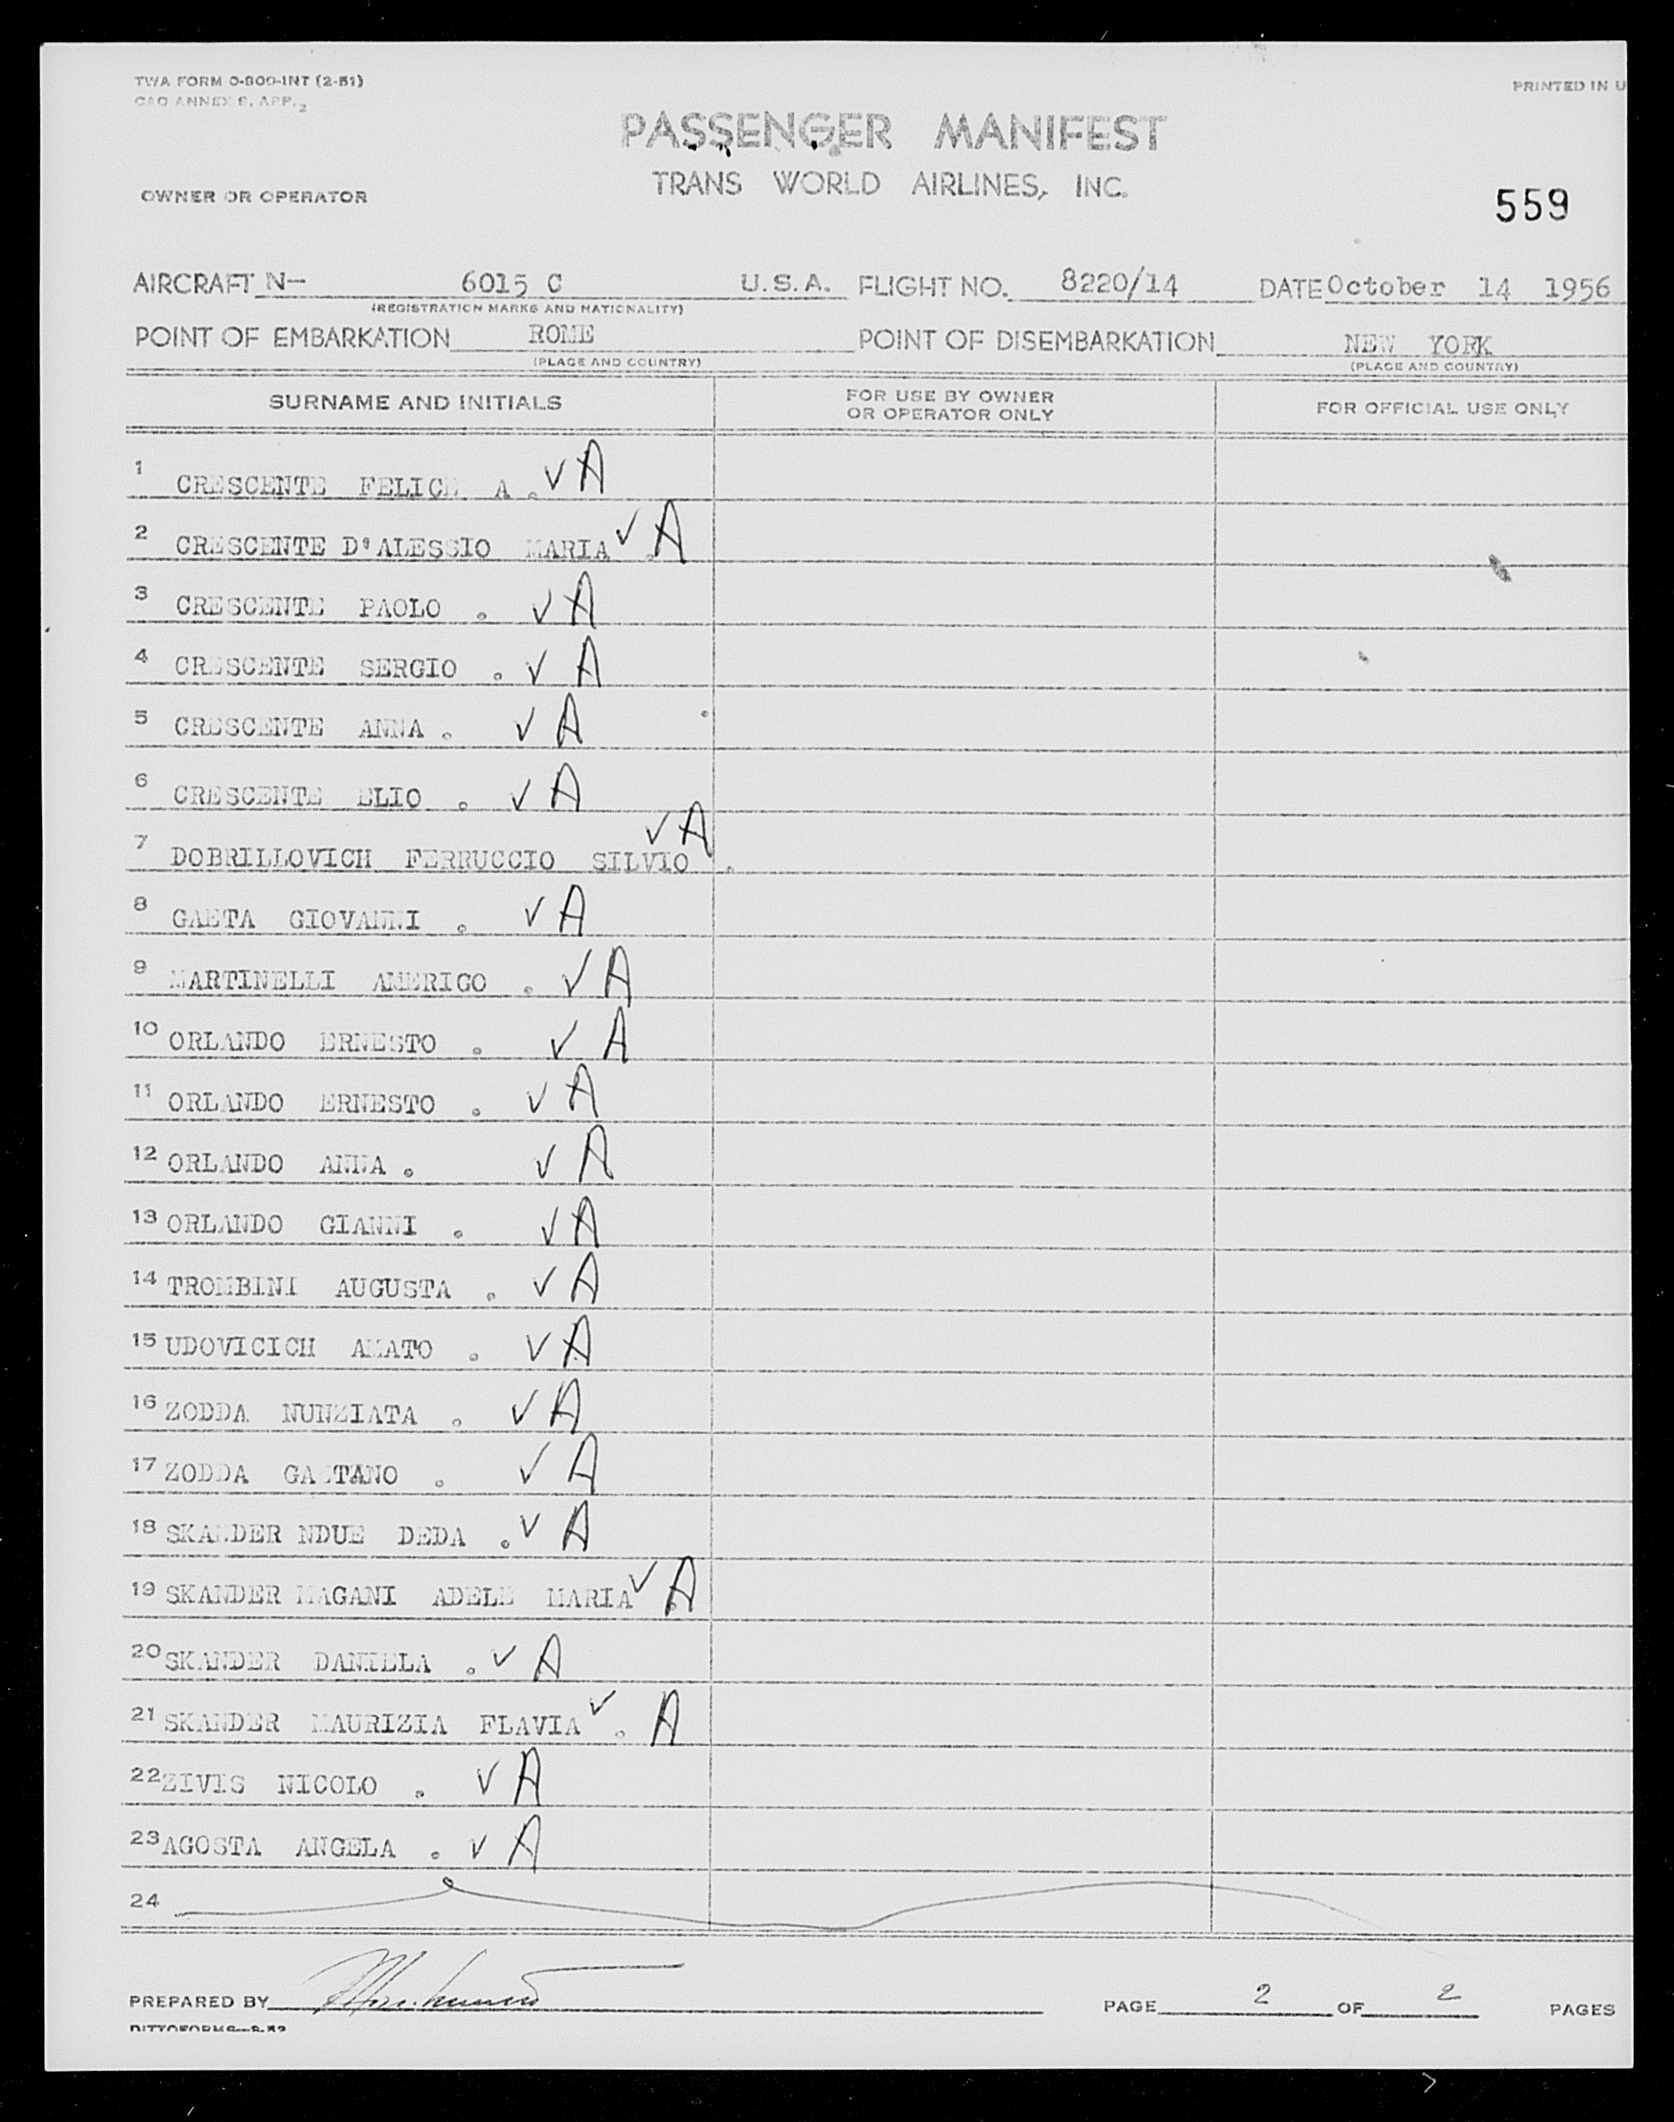 TWA FORM O-800-INT (2-51)
PRINTED IN U
CAO ANNEX 9, APP. 2
PASSENGER MANIFEST
TRANS WORLD AIRLINES, INC.
OWNER OR OPERATOR
559
AIRCRAFT N- 6015 C U.S.A. FLIGHT NO. 8220/14 DATE October 14 1956
(REGISTRATION MARKS AND NATIONALITY)
POINT OF EMBARKATION ROME POINT OF DISEMBARKATION NEW YORK
(PLACE AND COUNTRY) (PLACE AND COUNTRY)
SURNAME AND INITIALS FOR USE BY OWNER OR OPERATOR ONLY FOR OFFICIAL USE ONLY
1 CRESCENTE FELICE A . ✓ A
2 CRESCENTE D'ALESSIO MARIA . ✓ A
3 CRESCENTE PAOLO . ✓ A
4 CRESCENTE SERGIO . ✓ A
5 CRESCENTE ANNA . ✓ A
6 CRESCENTE ELIO . ✓ A
7 DOBRILLOVICH FERRUCCIO SILVIO . ✓ A
8 GAETA GIOVANNI . ✓ A
9 MARTINELLI AMERIGO . ✓ A
10 ORLANDO ERNESTO . ✓ A
11 ORLANDO ERNESTO . ✓ A
12 ORLANDO ANNA . ✓ A
13 ORLANDO GIANNI . ✓ A
14 TROMBINI AUGUSTA . ✓ A
15 UDOVICICH AMATO . ✓ A
16 ZODDA NUNZIATA . ✓ A
17 ZODDA GAETANO . ✓ A
18 SKANDER NDUE DEDA . ✓ A
19 SKANDER MAGANI ADELE MARIA . ✓ A
20 SKANDER DANIELA . ✓ A
21 SKANDER MAURIZIA FLAVIA . ✓ A
22 ZIVIS NICOLO . ✓ A
23 AGOSTA ANGELA . ✓ A
24
PREPARED BY PAGE 2 OF 2 PAGES
DITTOFORMS—8-52